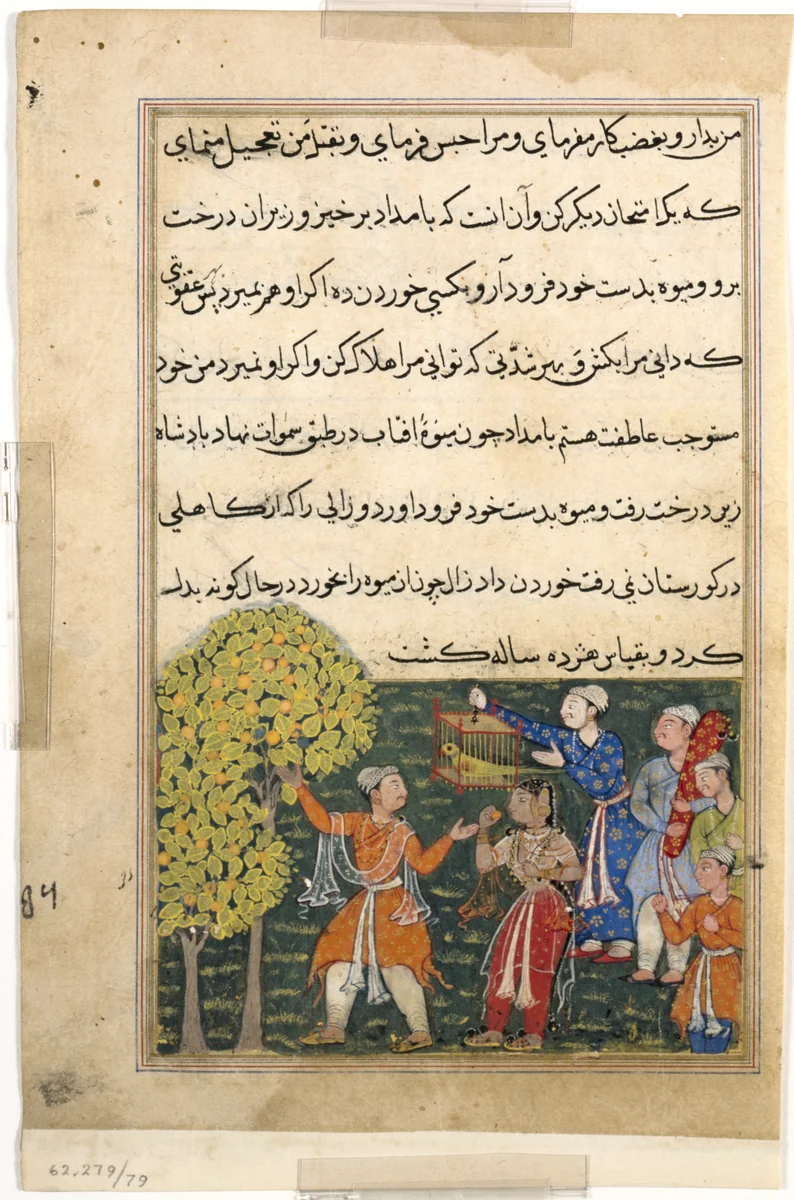 من بدار و بغضب کار مفرمای و مرا حبس فرمای و بقتل من تعجیل منمای
که یک امتحان دیگر کن و آن انست که بامداد بر خیز و زیر ان درخت
برو و میوه بدست خود فرود آر و بکسی خوردن ده اگر او هم بمیرد پس بهر عقوبتی
که دانی مرا بکش و بهر شدّتی که توانی مرا هلاک کن و اگر او نمیرد من خود
مستوجب عاطفت هستم بامداد چون میوهٔ افتاب در طبق سموات نهاد بادشاه
زیر درخت رفت و میوه بدست خود فرود اورد و زالی را که از کاهلی
در کورستان نمی رفت خوردن داد زال چون از میوه را بخورد در حال کونه بدل
کرد و بقیاس هژده ساله کشت
84
62.279/79